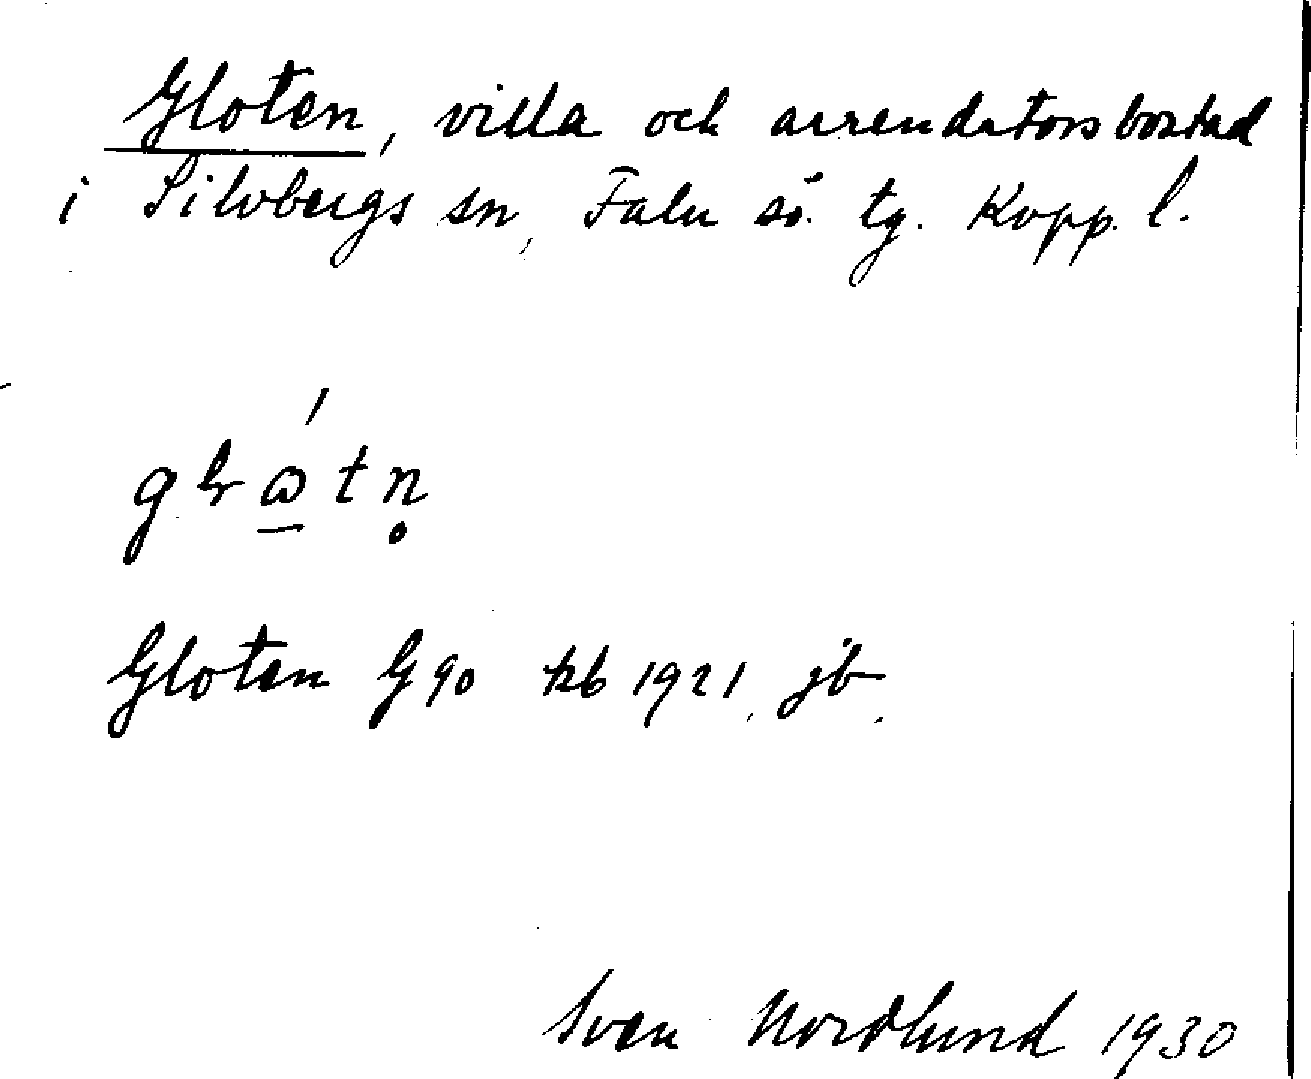 Gloten, villa och arrendatorsbostad
i Silvbergs sn, Falu sö. tg. Kopp. l.
glώ̲tn̥
Gloten G 90 kb 1921, jb.
Sven Nordlund 1930